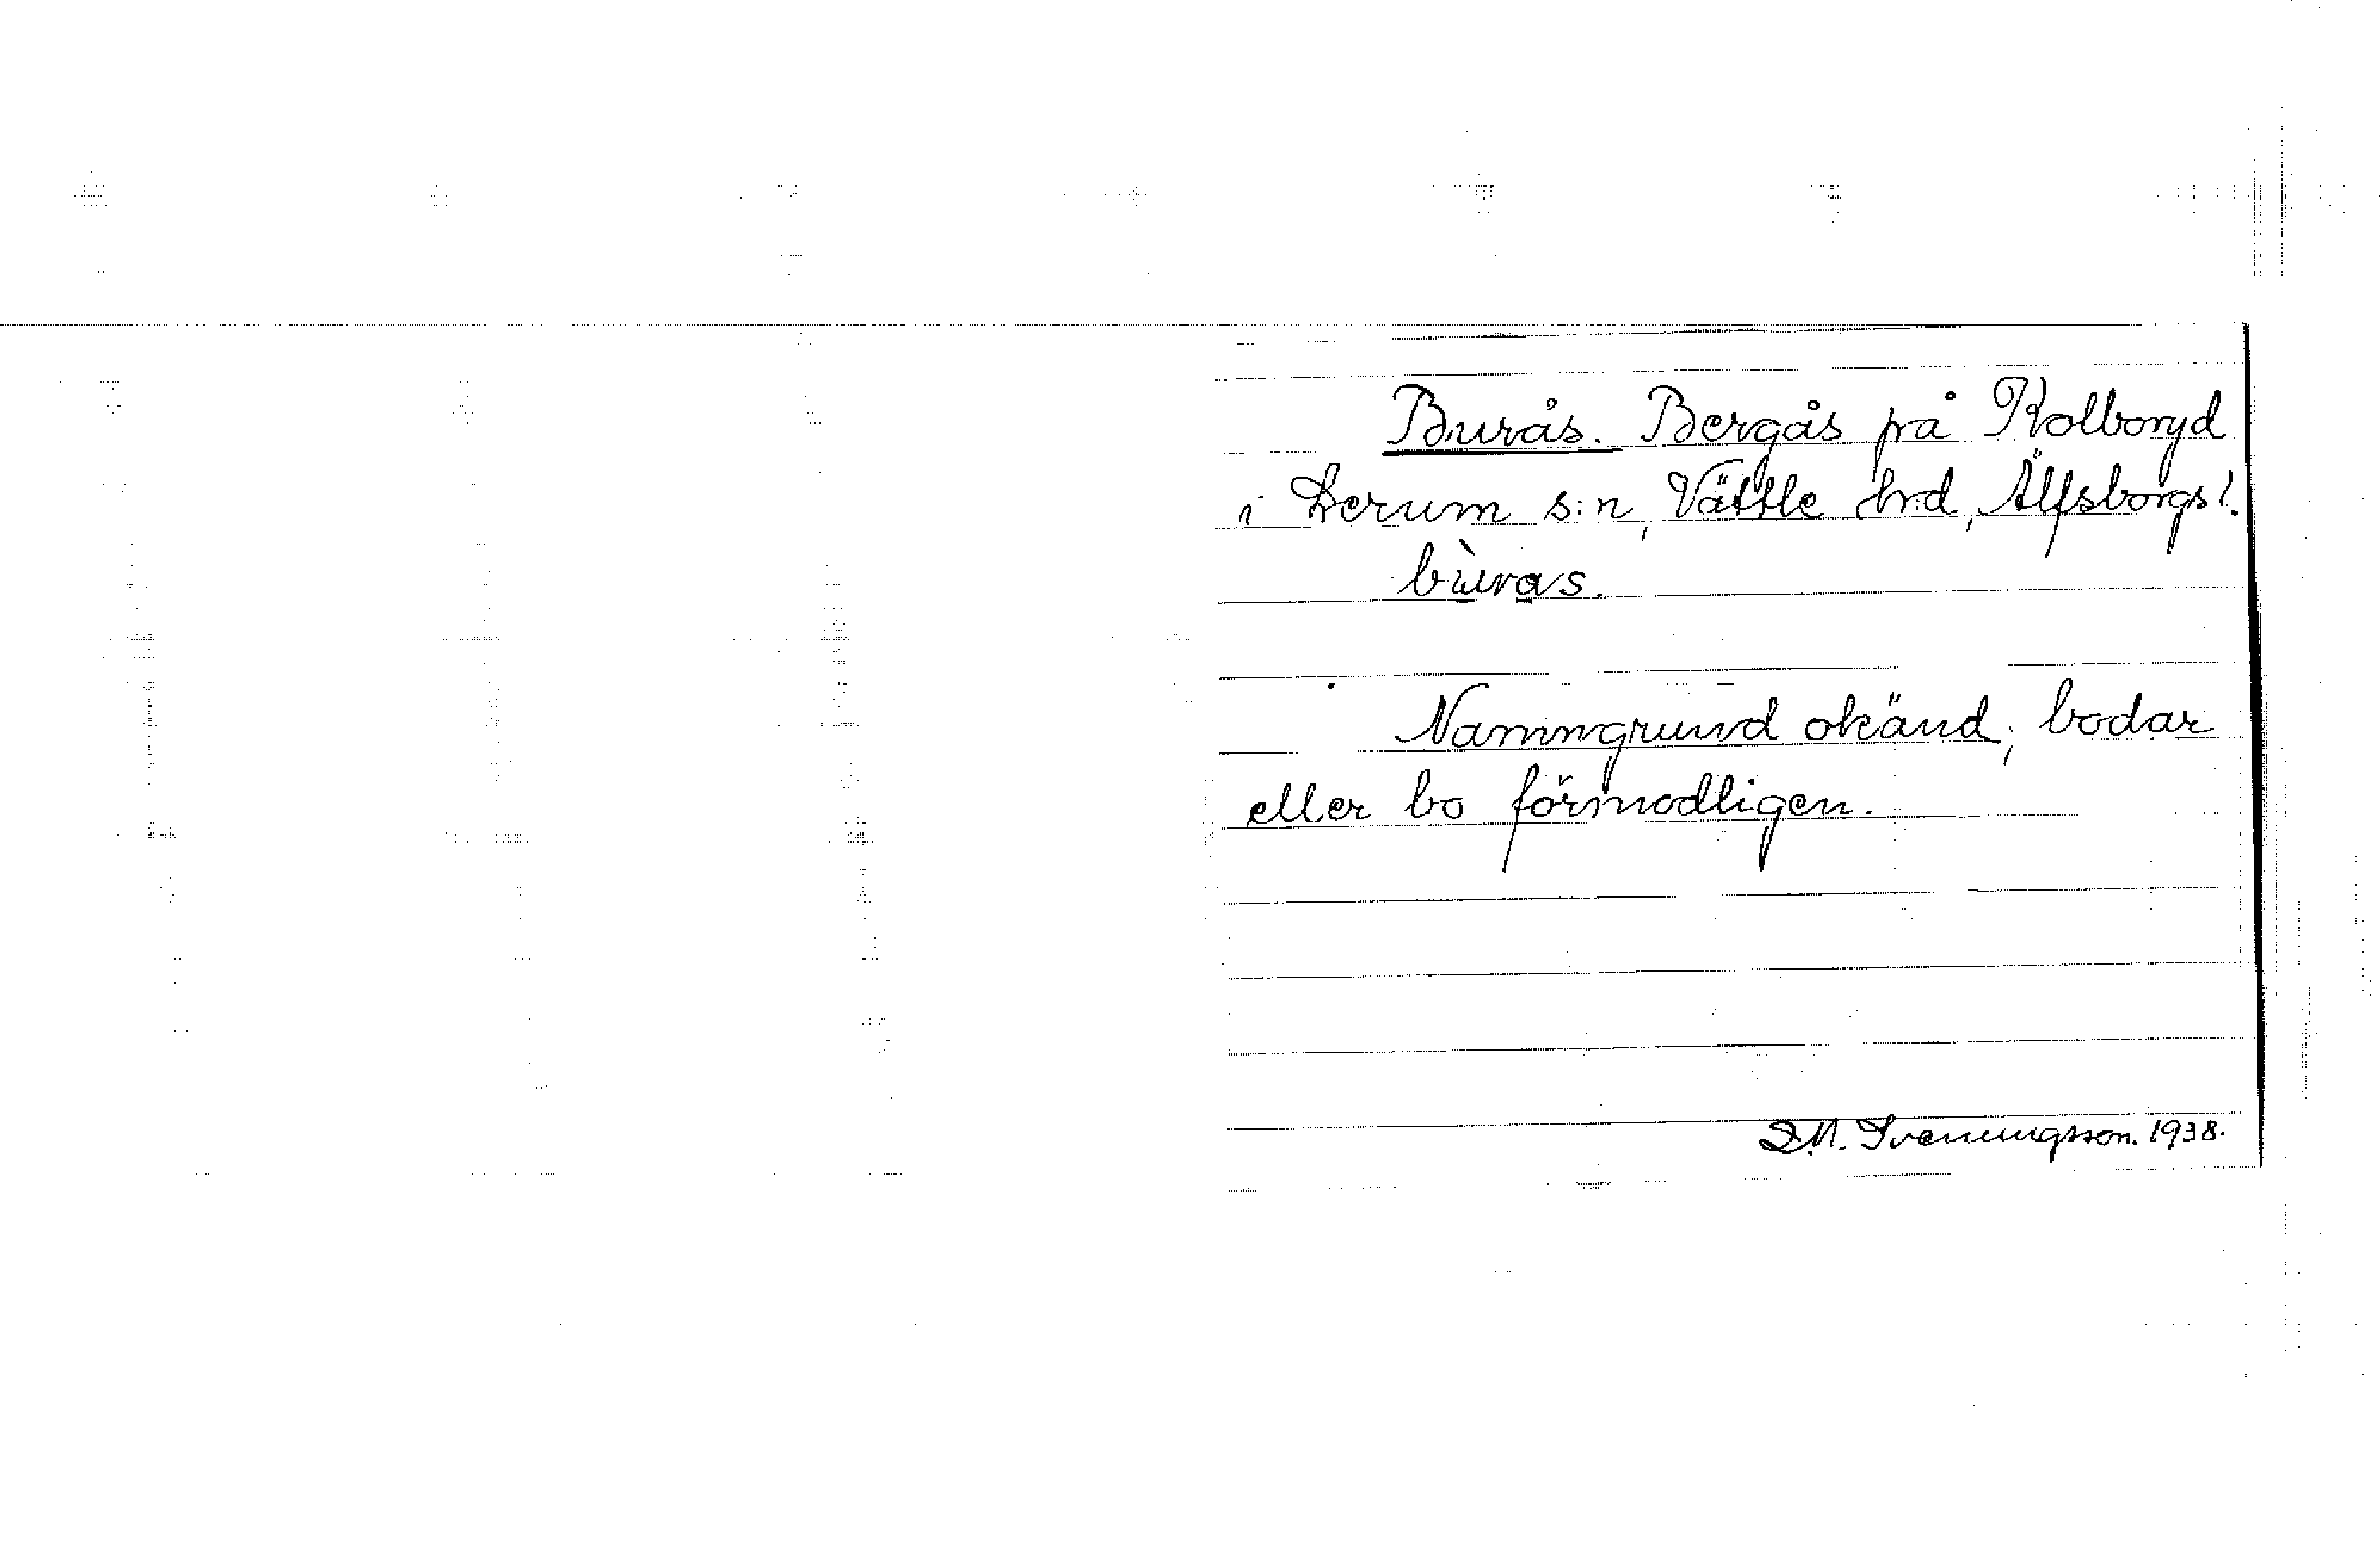 Burås. Bergås på Kolboryd
i Lerum s:n, Vättle hrd, Älfsborgs l.
bùras.
Namngrund okänd; bodar
eller bo förmodligen.
D.M. Svenningsson. 1938.